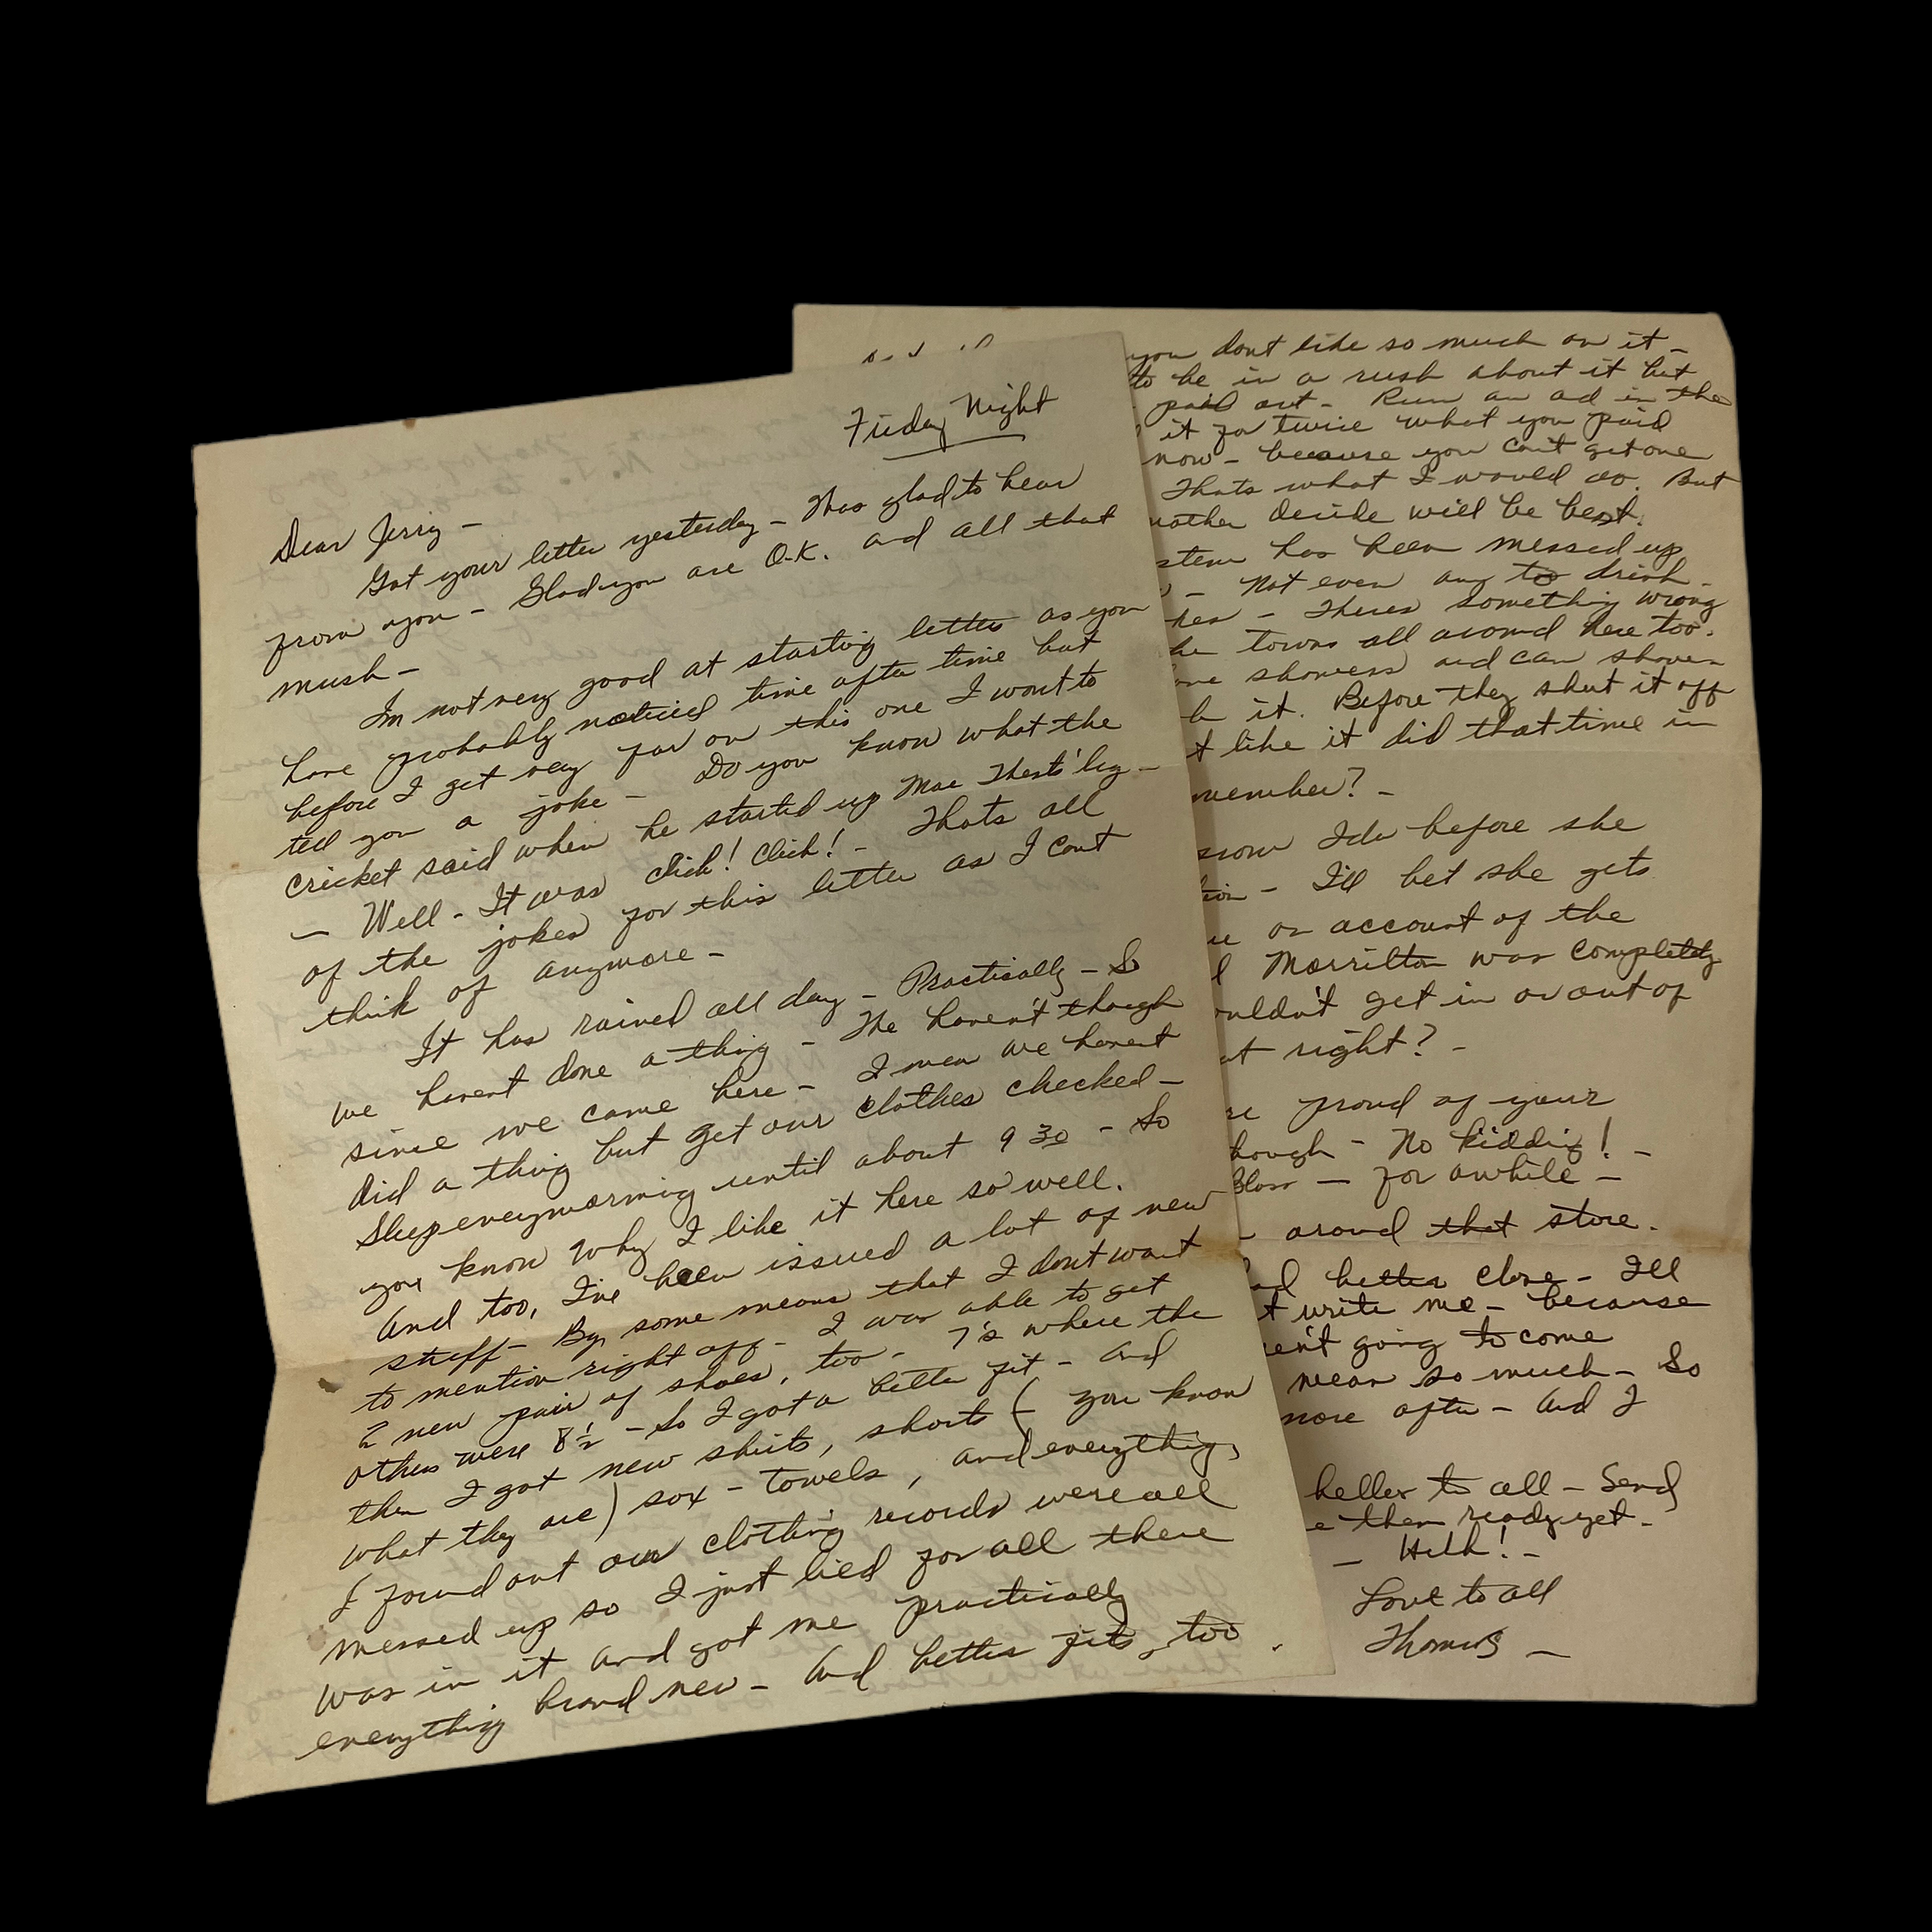 Friday Night
Dear Jerry -
Got your letter yesterday - Was glad to hear
from you - Glad you are O.K. and all that
mush -
Im not very good at starting letters as you
have probably noticed time after time but
before I get very far on this one I want to
tell you a joke - Do you know what the
cricket said when he started up Mae Wests' leg -
- Well - It was click! click! - Thats all
of the jokes for this letter as I cant
think of anymore -
It has rained all day - Practically - So
we havent done a thing - We haven't though
since we came here - I mean we havent
did a thing but get our clothes checked -
Sleep every morning until about 9 30 - So
you know why I like it here so well.
And too, I've been issued a lot of new
stuff - By some means that I dont want
to mention right off - I was able to get
2 new pair of shoes, too - 7's where the
others were 8½ - So I got a better fit - And
then I got new shirts, shorts ( you know
what they are ) sox - towels, and everything,
I found out our clothing records were all
messed up so I just lied for all there
was in it and got me practically
everything brand new - And better fits, too.
you dont like so much on it -
to be in a rush about it but
paid out - Run an ad in the
it for twice what you paid
now - because you can't get one
Thats what I would do. But
mother decide will be best.
stem has been messed up
- Not even any to drink -
- Theres something wrong
towns all around here too.
showers and can shower
it. Before they shut it off
t like it did that time in
member? -
know Ida before she
tion - I'll bet she gets
on account of the
Morrilton was completely
ouldn't get in or out of
at right? -
proud of your
hough - No kidding! -
Bloss - for awhile -
- around that store.
ad better close - Ill
t write me - because
en't going to come
mean so much - So
more often - And I
hello to all - Send
e them ready yet -
- Huh! -
Love to all
Thomas -